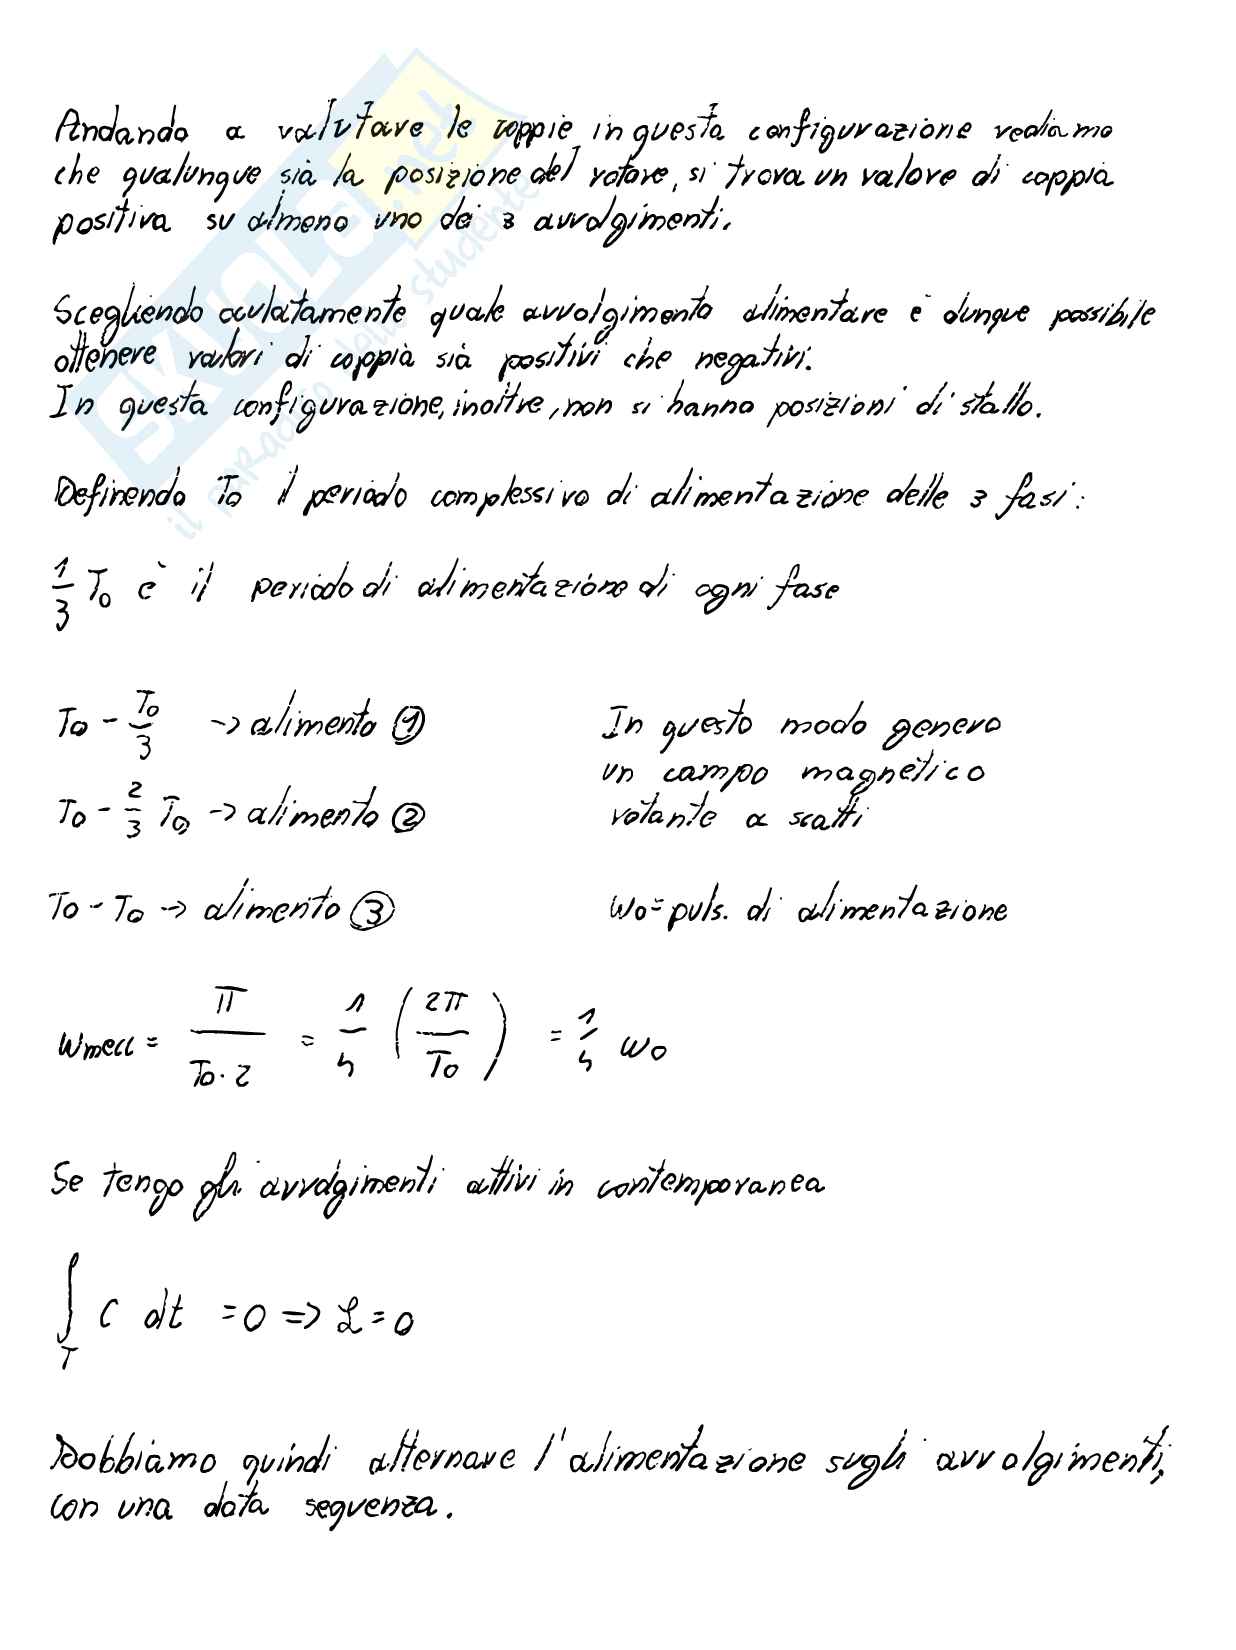 Andando a valutare le coppie in questa configurazione vediamo
che qualunque sià la posizione del rotore, si trova un valore di coppia
positiva su almeno uno dei 3 avvolgimenti.
Scegliendo oculatamente quale avvolgimento alimentare è dunque possibile
ottenere valori di coppia sià positivi che negativi.
In questa configurazione, inoltre, non si hanno posizioni di stallo.
Definendo T0 il periodo complessivo di alimentazione delle 3 fasi:
1/3 T0 è il periodo di alimentazione di ogni fase
T0 - T0/3 -> alimento ① In questo modo genero
un campo magnetico
T0 - 2/3 T0 -> alimento ② rotante a scatti
T0 - T0 -> alimento ③ ω0 = puls. di alimentazione
ωmecc = π / (T0 · 2) = 1/4 (2π / T0) = 1/4 ω0
Se tengo gli avvolgimenti attivi in contemporanea
∫T C dt = 0 => ℒ = 0
Dobbiamo quindi alternare l'alimentazione sugli avvolgimenti,
con una data sequenza.
SKUOLA.net
il paradiso dello studente